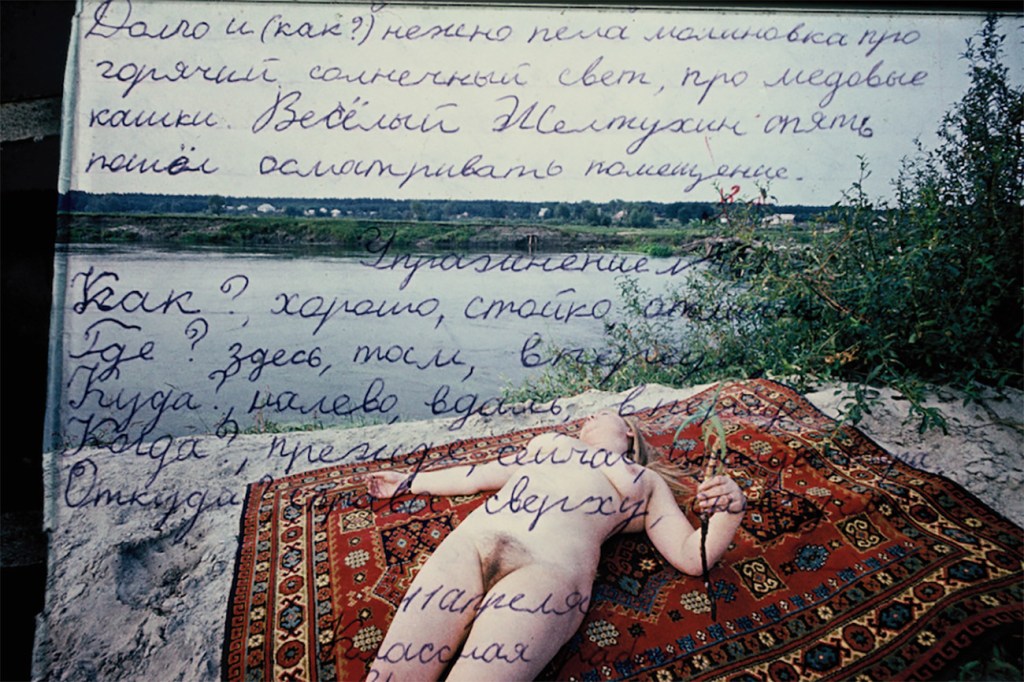 Долго и (как?) нежно пела малиновка про
горячий солнечный свет, про медовые
кашки. Весёлый Желтухин опять
пошёл осматривать помещение.
?
Упражнением
Как?, хорошо, стойко
Где? здесь, там, вперед
Куда?, налево, вдаль,
Когда?, прежде, сейчас,
Откуда? справа сверху,
11 апреля
Классная